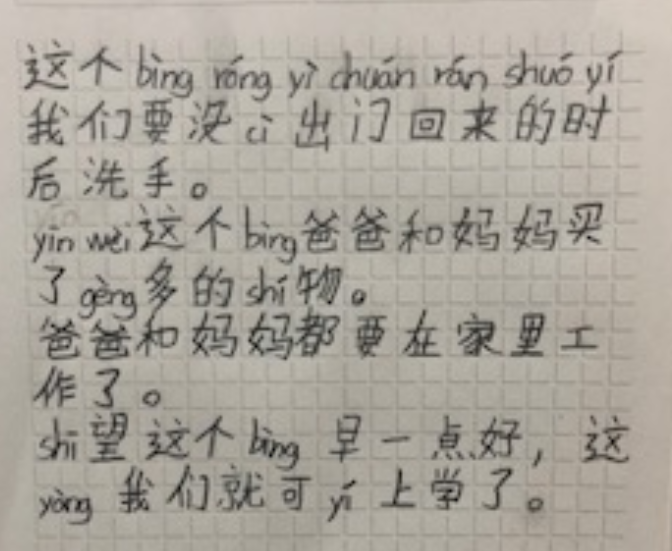 这个bìng róng yì chuán rán shuó yí
我们要没cì出门回来的时
后洗手。
yīn wèi这个bìng爸爸和妈妈买
了gèng多的shí物。
爸爸和妈妈都要在家里工
作了。
shī望这个bìng早一点好，这
yàng我们就可yí上学了。